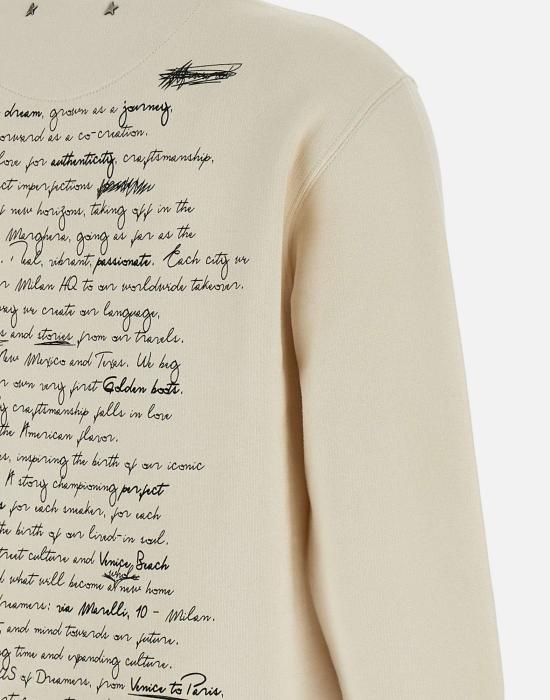 dream, grown as a journey,
forward as a co-creation.
love for authenticity, craftsmanship,
imperfections
new horizons, taking off in the
Marghera, going as far as the
real, vibrant, passionate. Each city we
Milan HQ to our worldwide takeover.
way we create our language,
and stories from our travels.
New Mexico and Texas. We beg
own very first Golden boots.
craftsmanship falls in love
the American flavor.
inspiring the birth of our iconic
A story championing perfect
for each sneaker, for each
the birth of our lived-in soul.
street culture and Venice Beach
what will become a new home
dreamers: via Marelli, 10 - Milan.
and mind towards our future.
time and expanding culture.
of Dreamers, from Venice to Paris,